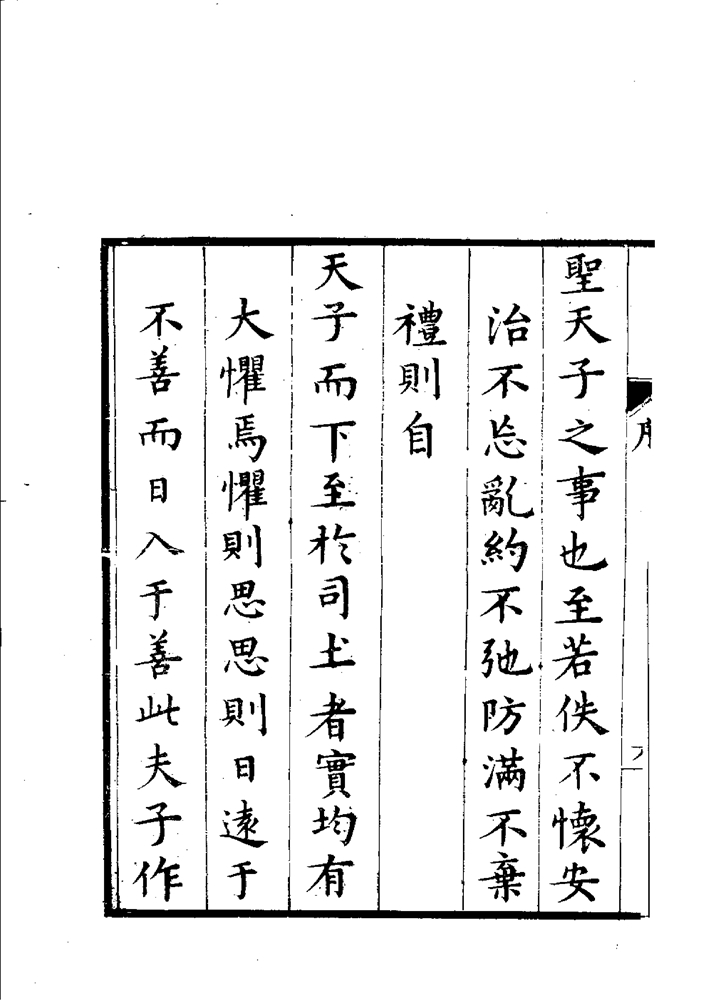 聖天子之事也至若佚不懷安
治不忘亂約不弛防滿不棄
禮則自
天子而下至於司土者實均有
大懼焉懼則思思則日遠于
不善而日入于善此夫子作